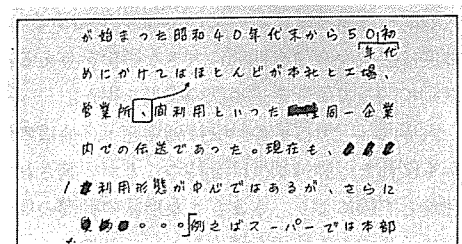 が始まった昭和40年代末から50初
年代
めにかけてはほとんどが本社と工場、
営業所、間利用といった 同一企業
内での伝送であった。現在も、
利用形態が中心ではあるが、さらに
。。。例えばスーパーでは本部